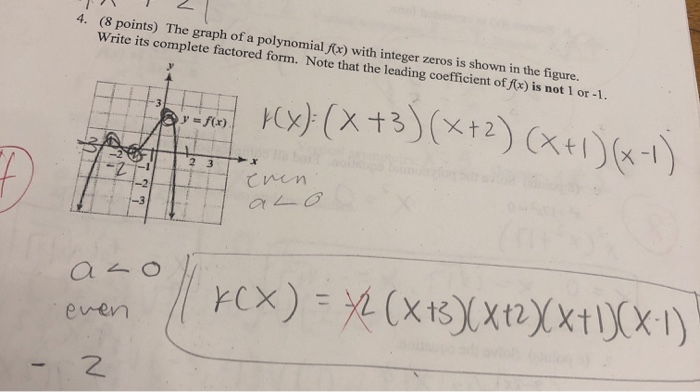 4. (8 points) The graph of a polynomial f(x) with integer zeros is shown in the figure.
Write its complete factored form. Note that the leading coefficient of f(x) is not 1 or -1.
y
3
y = f(x)
-3 -2 -1 2 3 x
-2
-1
-2
-3
f(x): (x+3)(x+2)(x+1)(x-1)
even
a<0
a<0
even
-2
f(x) = -2(x+3)(x+2)(x+1)(x-1)